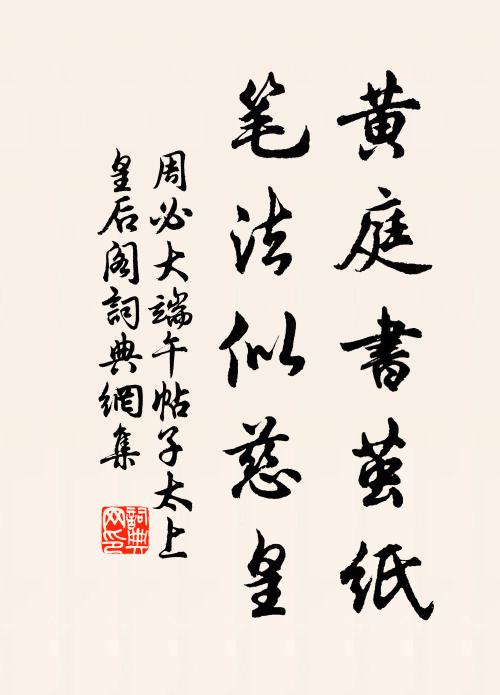 黄庭書茧纸
笔法似慈皇
周必大端午帖子太上
皇后阁詞典網集
詞典网印